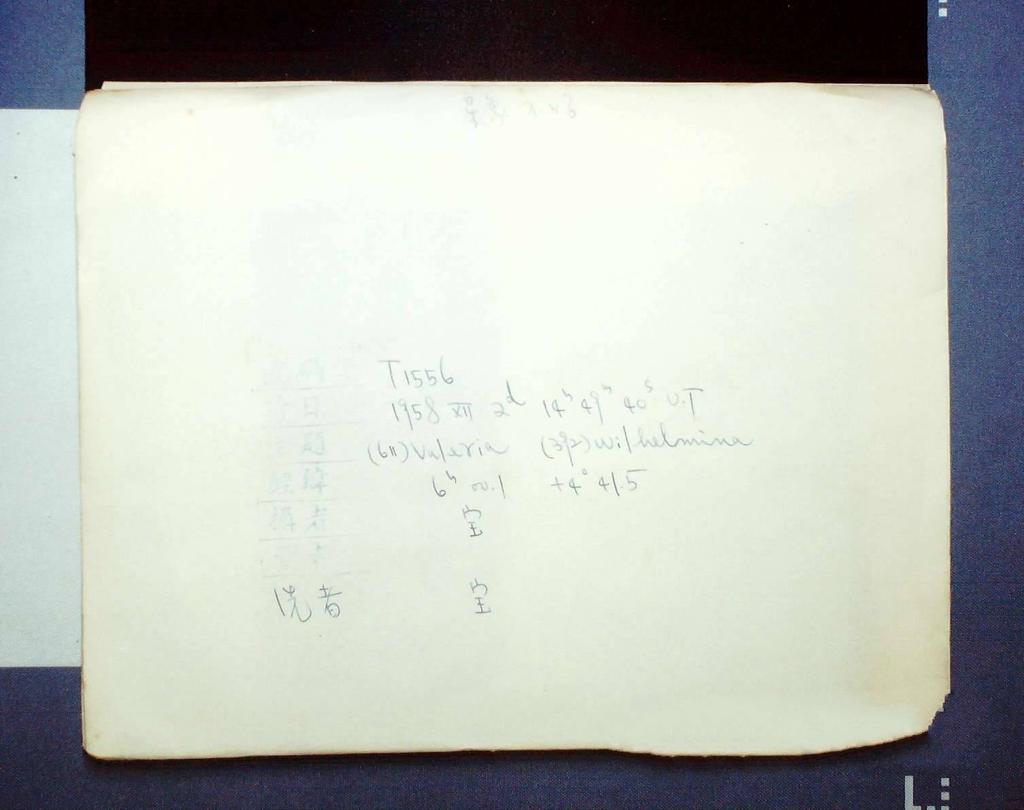 T1556
1958 XII 2d 14h 49m 40s U.T
(611) Valeria (392) Wilhelmina
6h 00.1 +4° 41.5
攝者 宝
洗者 宝